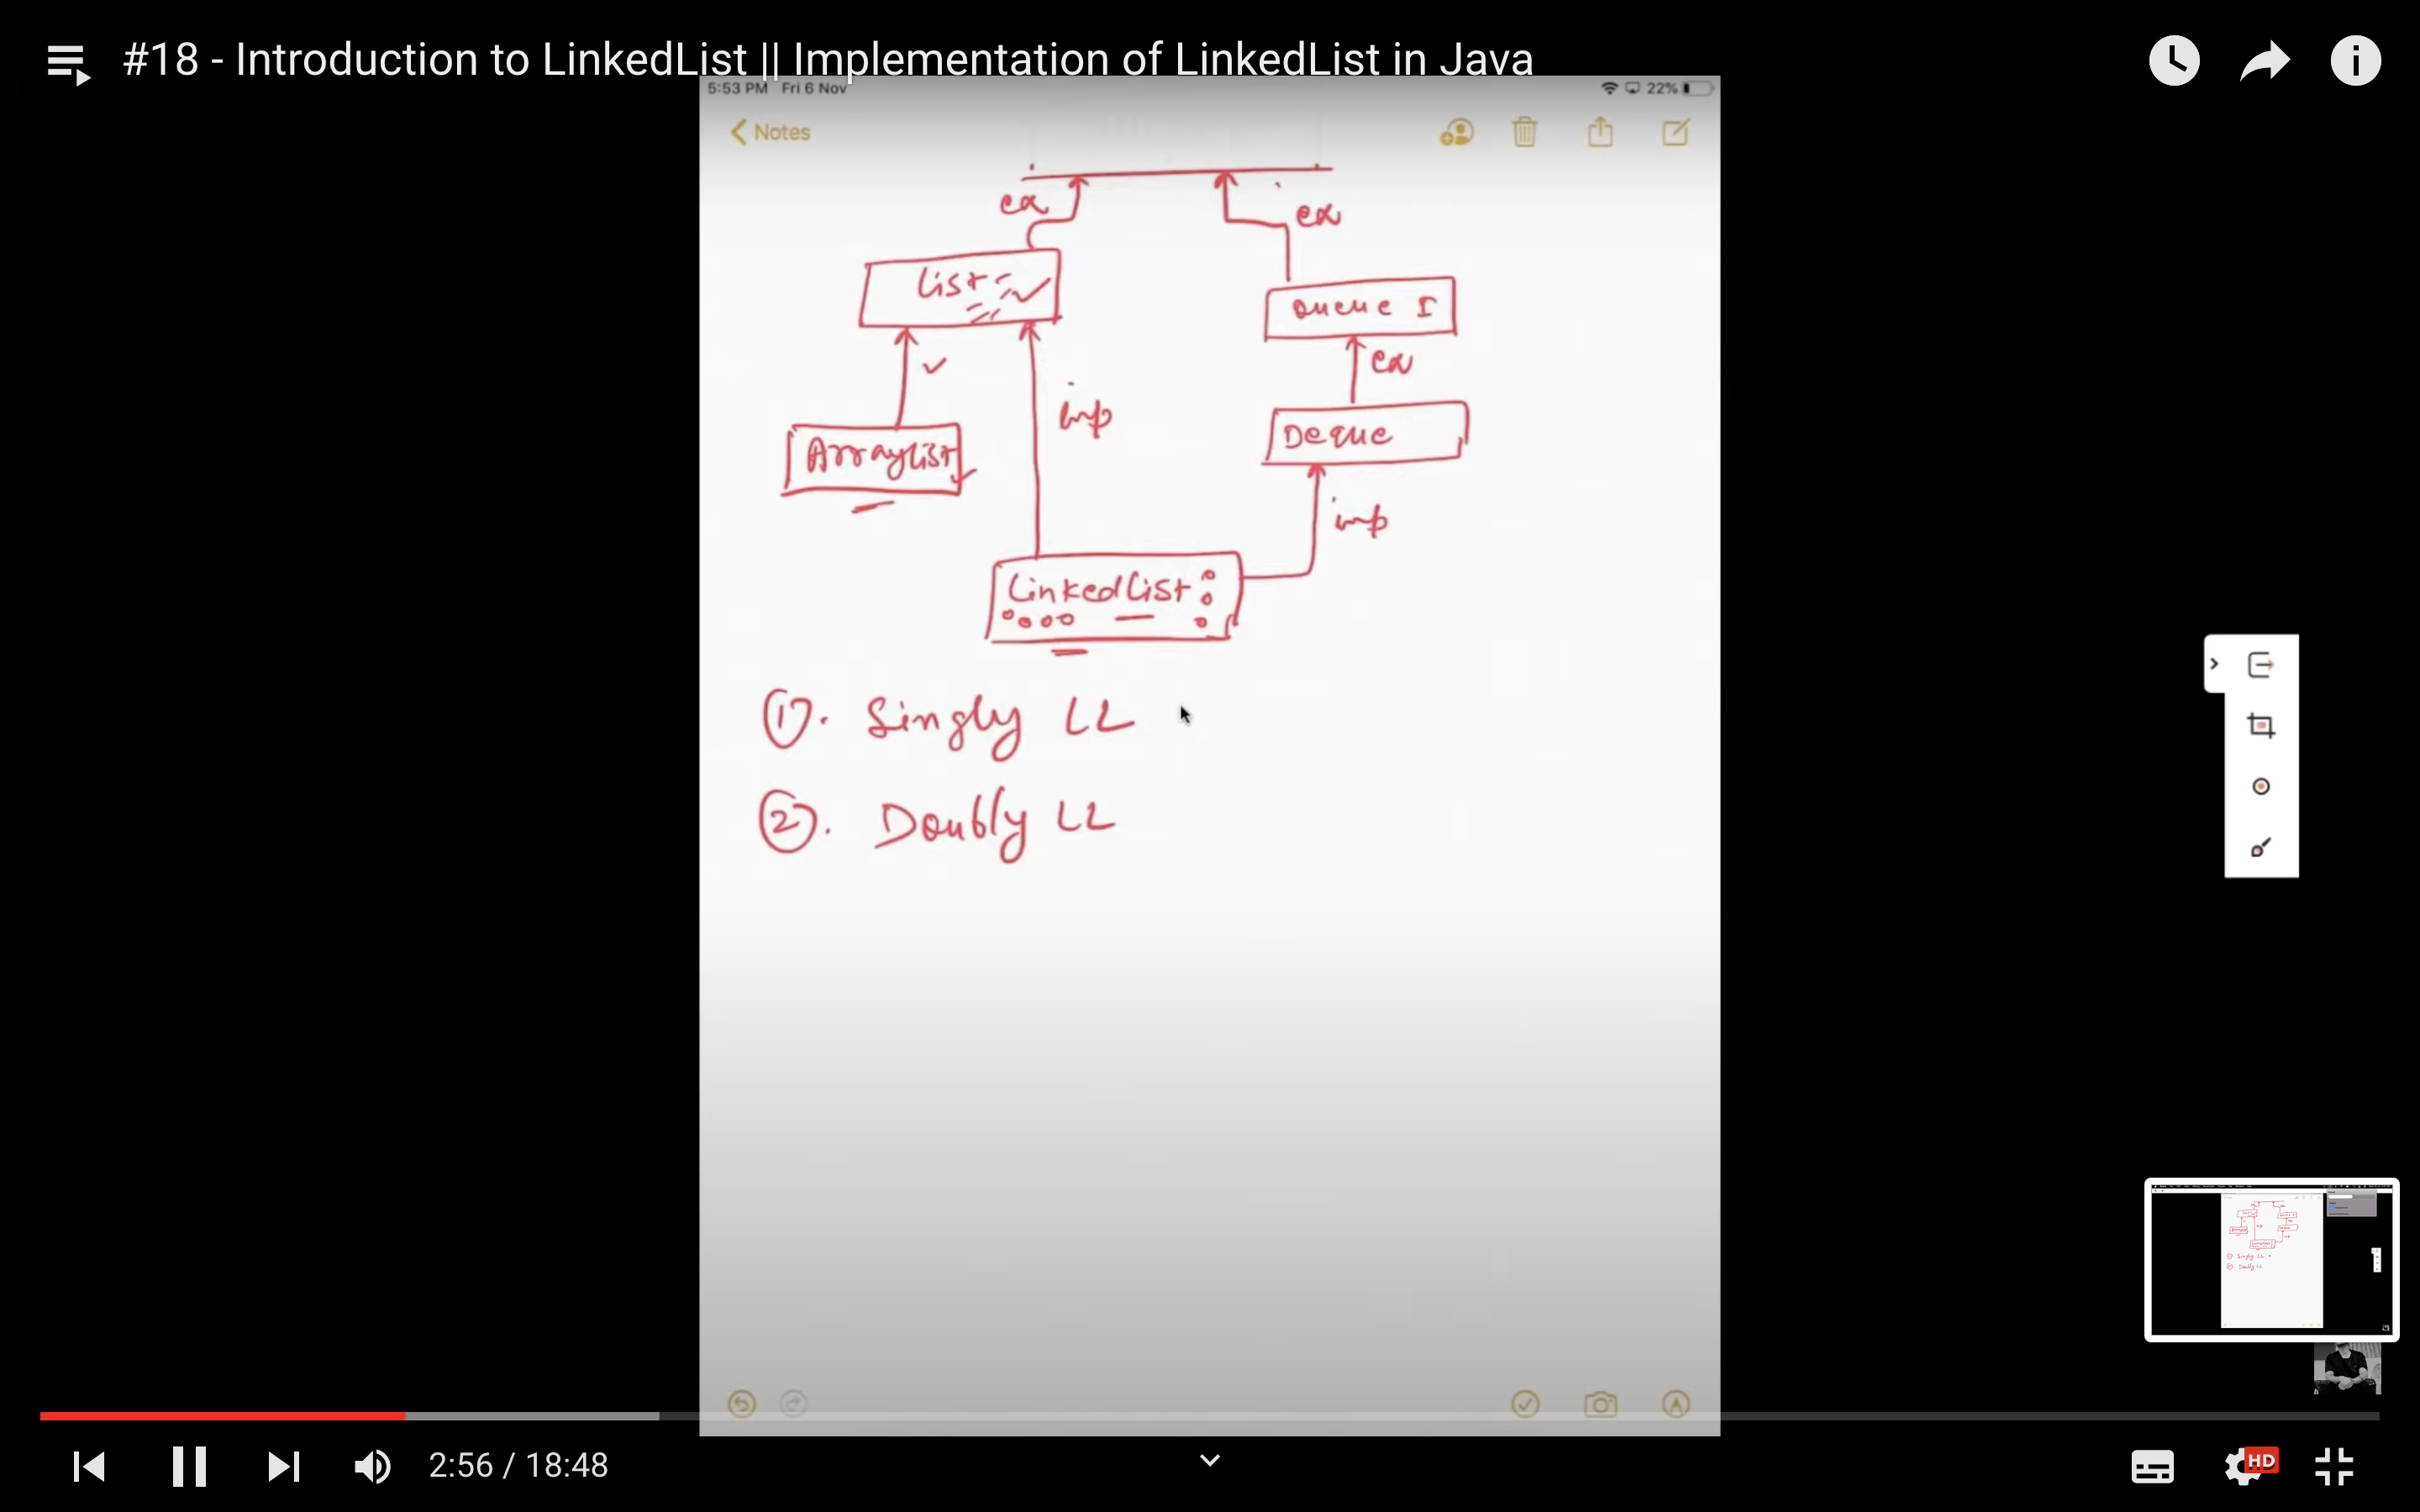 #18 - Introduction to LinkedList || Implementation of LinkedList in Java
5:53 PM Fri 6 Nov
22%
Notes
ex
ex
List
Queue I
ex
imp
Deque
ArrayList
imp
LinkedList
1. Singly LL
2. Doubly LL
2:56 / 18:48
HD